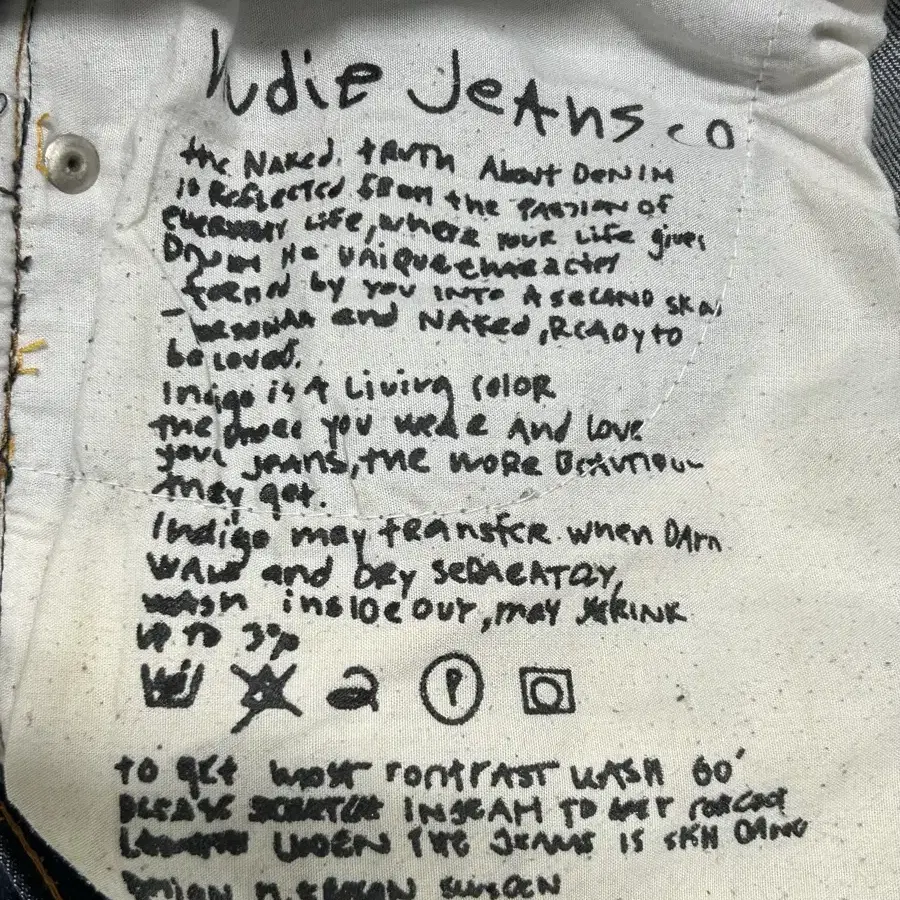 Nudie Jeans co
the NAKed. tRUTH About DENIM
is ReflectED fROM the PASSION OF
EVERYDAY LiFe, where YOUR LiFe gives
DENIM its UNiQue character
- formed by you INTO A SECOND SKIN,
PERSONAL and NAKed, READY to
be loved.
Indigo is A Living COlOR
the more you weAR And Love
your JeANS, the MORe BEAUTIFUL
they get.
Indigo may tRansfer. when DArn
WASH and DRY SEPARATLY,
WASH insideout, may SHRINK
UP TO 3%
P
TO get MOST CONTRAST WASH 60°
PLEASE STRETCH INSEAM TO GET CORRECT
UNDEN THE JEANS IS
DESIGN SWEDEN